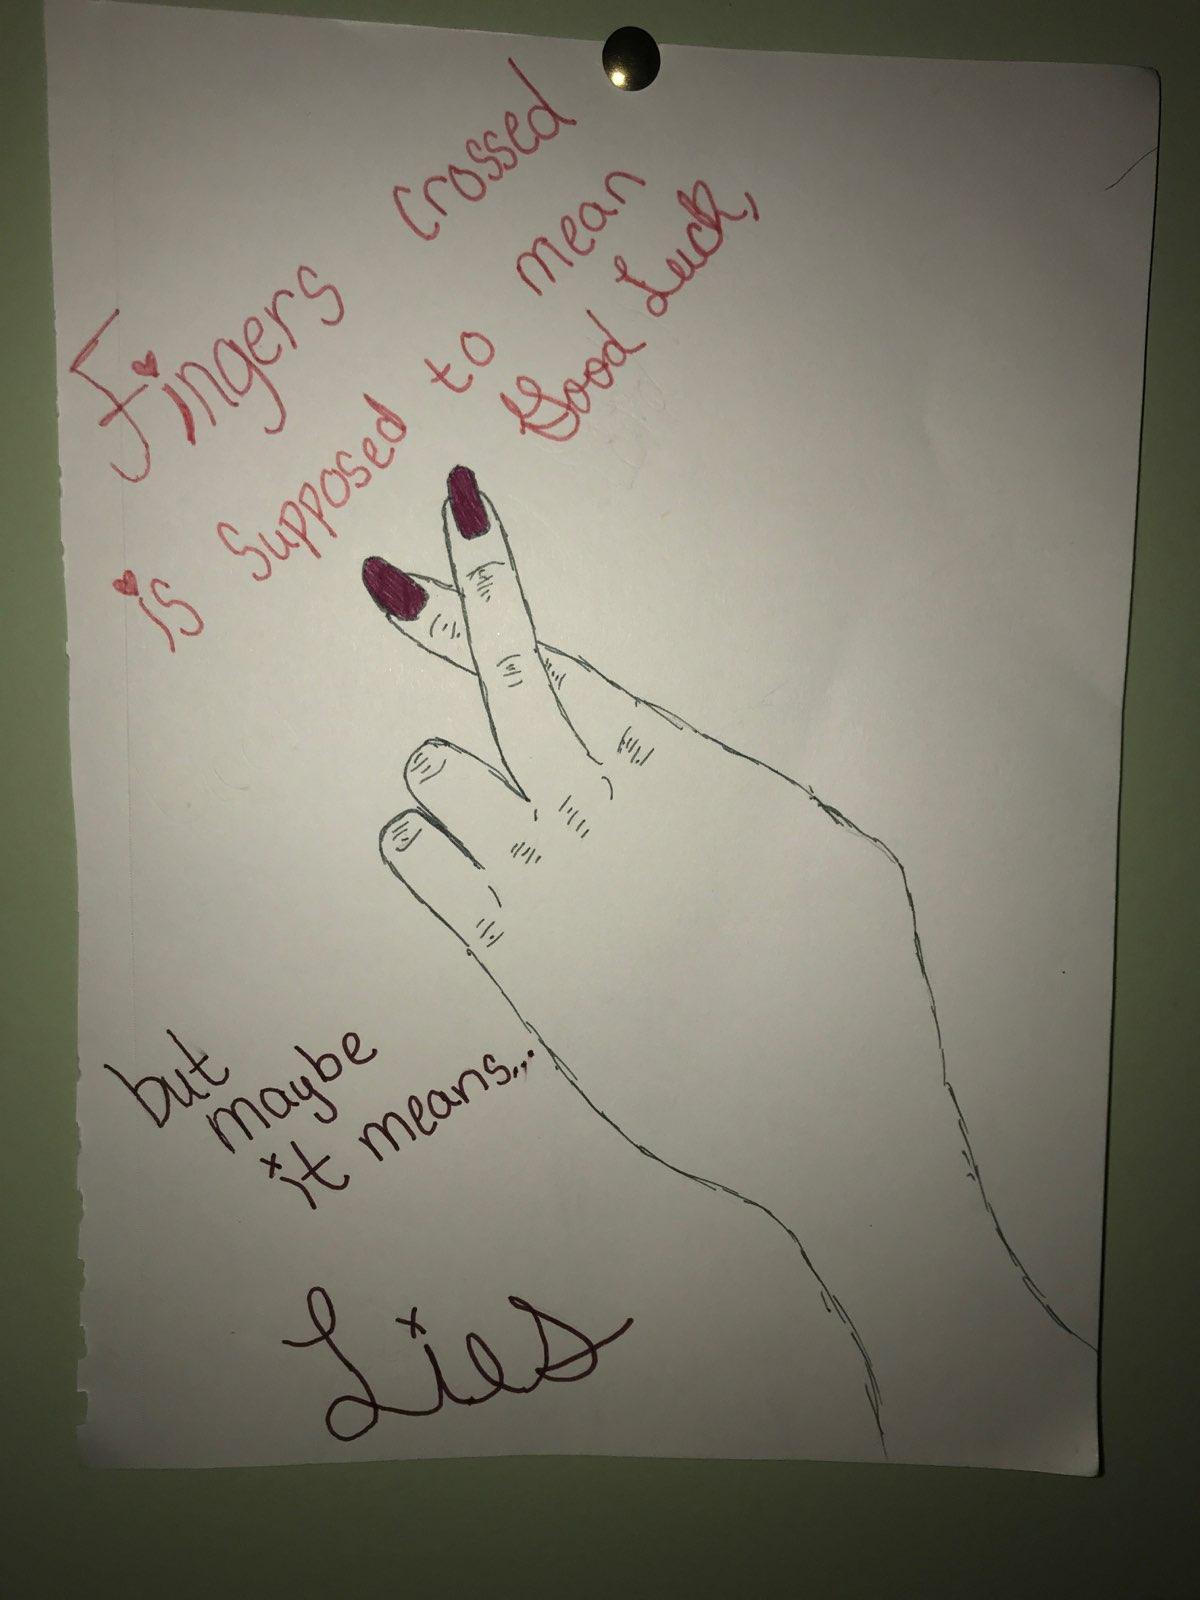 Fingers crossed
is supposed to mean
Good Luck,
but
maybe
it means...
Lies